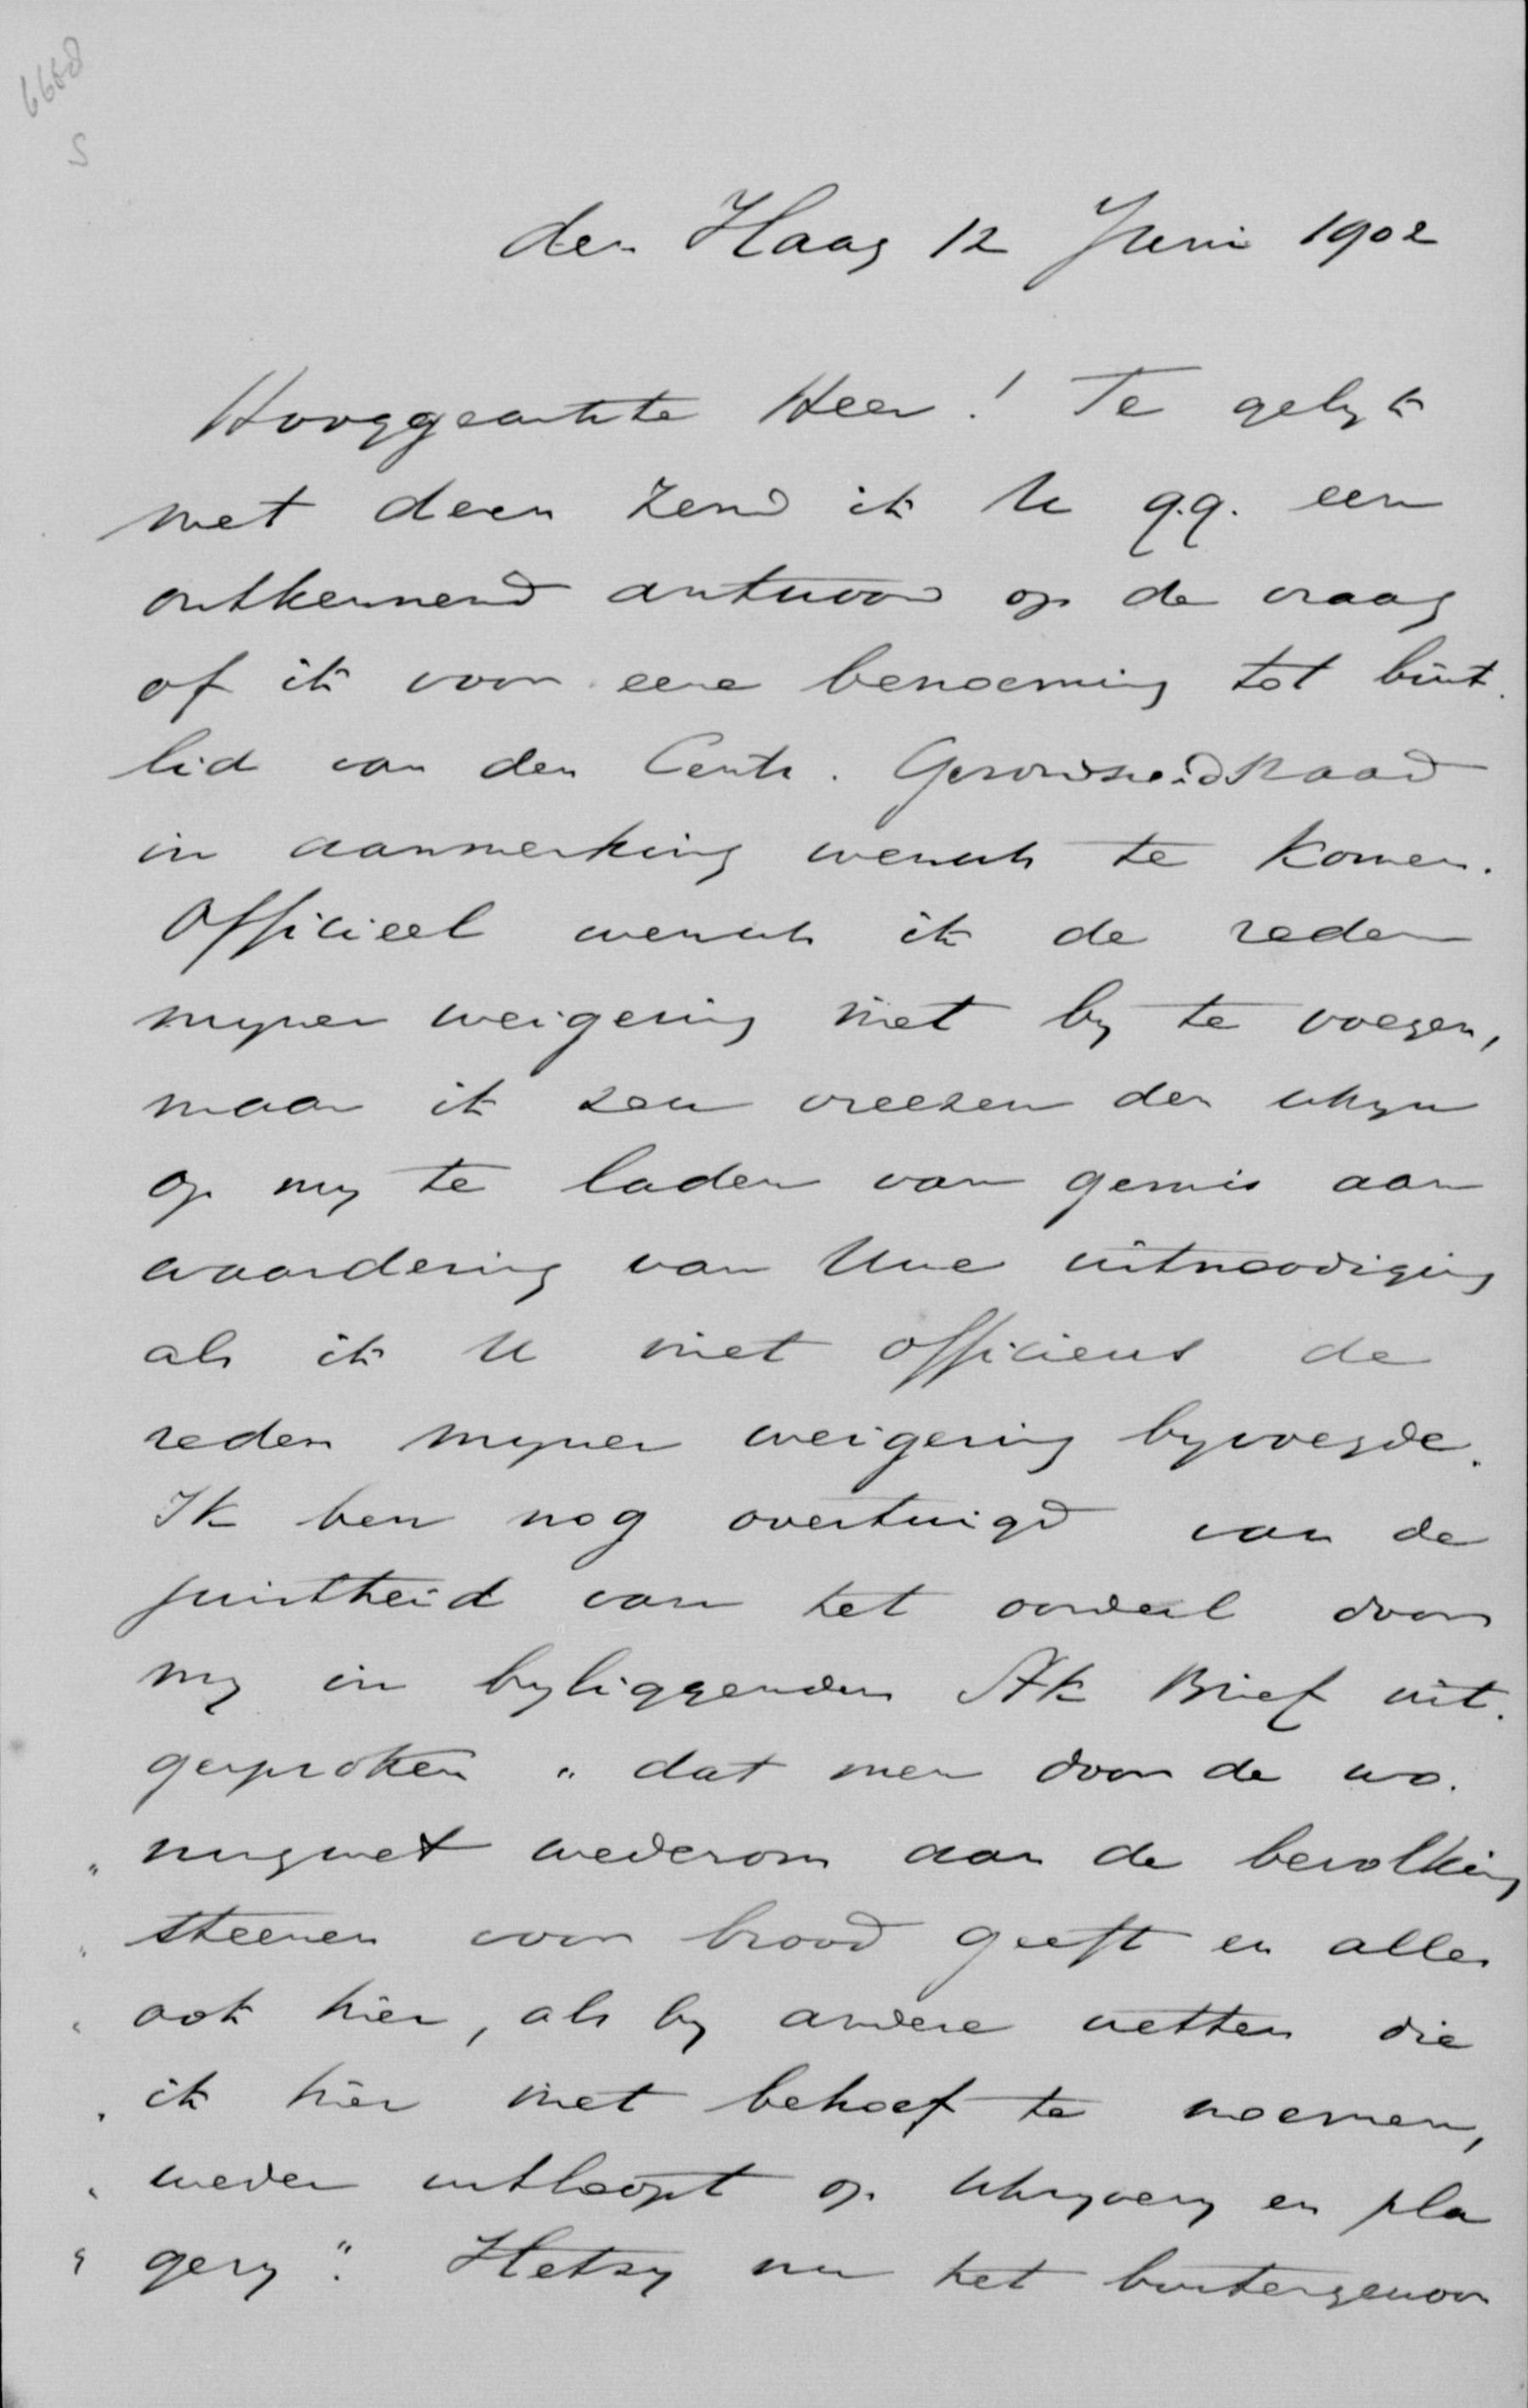 6668
S
den Haag 12 Juni 1902
Hooggeachte Heer! Te gelyk
met deen zend ik U q.q. een
ontkennend antwoord op de vraag
of ik voor eene benoeming tot buit.
lid van den Centr. Gezondheidsraad
in aanmerking wensch te komen.
Officieel wensch ik de reden
myner weigering niet by te voegen,
maar ik zou vreezen den schyn
op my te laden van gemis aan
waardering van Uwe uitnoodiging
als ik U niet officieus de
reden myner weigering byvoegde.
Ik ben nog overtuigd van de
juistheid van het oordeel door
my in byliggenden Ak Brief uit.
gesproken " dat men door de wo.
" ningwet wederom aan de bevolking
" steenen voor brood geeft en alles
" ook hier, als by andere wetten die
" ik hier niet behoef te noemen,
" weder uitloopt op schryvery en pla
" gery". Hetzy nu het buitengewoon